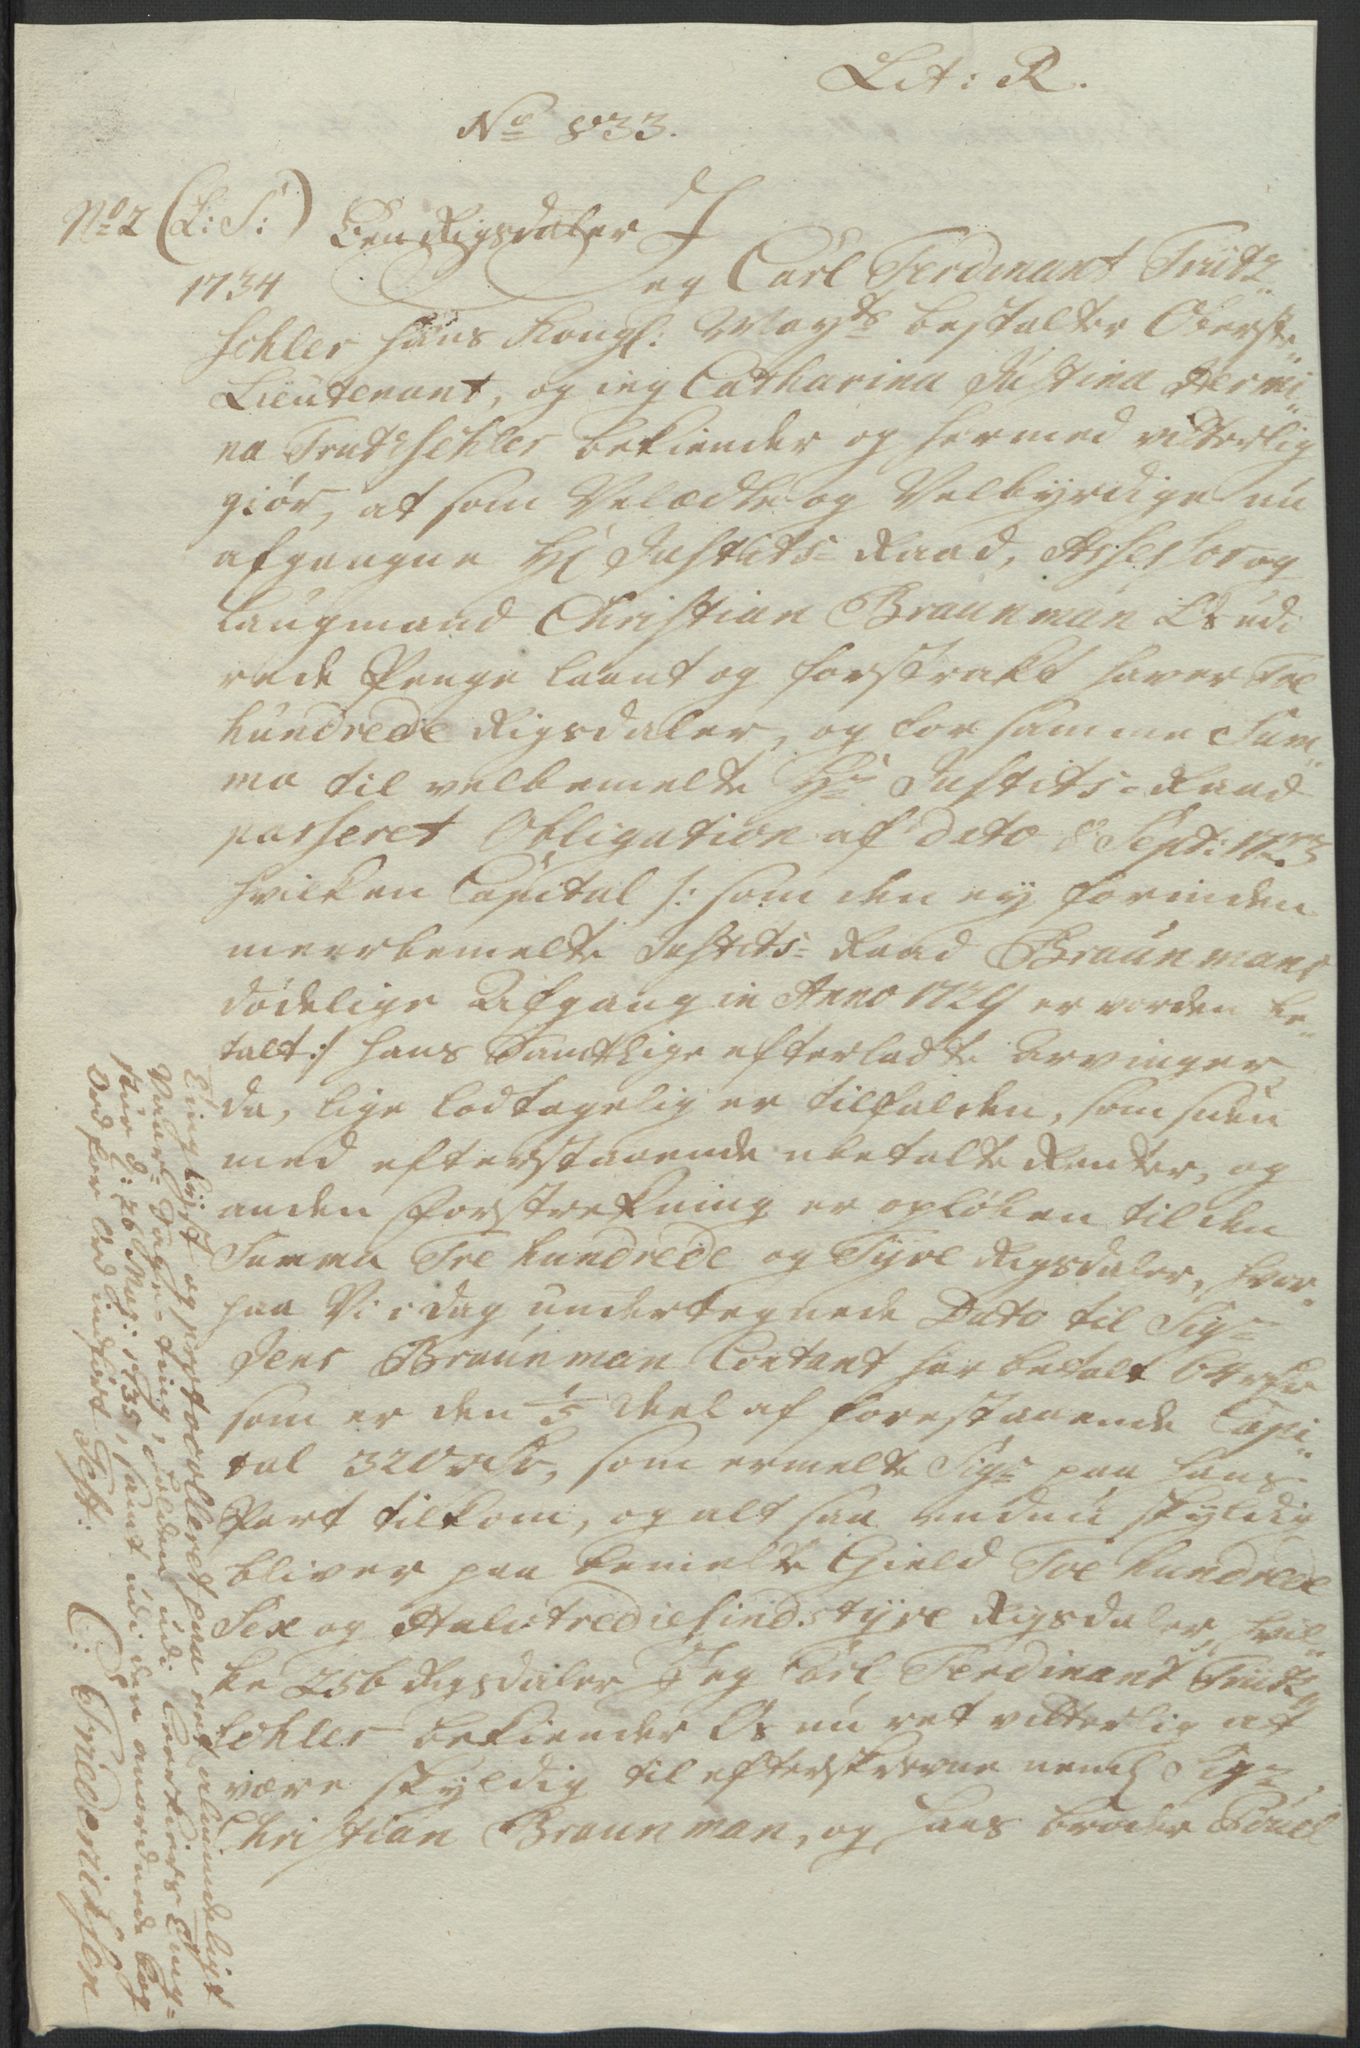 Lit: R.
No 833.
No 2 (L: S:) Een Rigsdaler
1734
Jeg Carl Ferdinant Trütz„
schler Hans Kongl: Mayts bestalter Oberst„
Lieutenant, og ieg Catharina Justina Hermi„
na Trutzschler bekiender og hermed vitterlig
giör, at som Velædle og Velbyrdige nu
afgangne Hr Justits-Raad, Assessor og
Laugmand Christian Braunman Os udi
rede Penge laant og forstrakt haver Tre
hundrede Rigsdaler, og for samme Sum„
ma til velbemelte Hr Justits-Raad
passeret Obligation af dato 8 Sept: 1723
hvilken Capital /: som den ey forinden
meerbemelte Justits-Raad Braunmans
dödelige Afgang in Anno 1729 er vorden be„
talt :/ hans Samtlige efterladte Arvinger
da, lige lodtagelig er tilfalden, som siden
med efterstaaende ubetalte Renter, og
anden forstrekning er oplöben til den
Summa Tre hundrede og Tyve Rigsdaler, hvor„
paa Vi i dag undertegnede Dato til Sigr
Jens Braunman Contant har betalt 64 rdr
som er den 1/5 deel af forestaaende Capi„
tal 320 rdr, som ermelte Sigr paa hans
Part tilkom, og alt saa endnu skyldig
bliver paa bemelte Gield Toe hundrede
Sex og Halvtrediesindstyve Rigsdaler, hvil„
ke 256 Rigsdaler Jeg Carl Ferdinant Trutz„
schler bekiender Os nu ret vitterlig at
være skyldig til efterskrevne neml Sigr
Christian Braunman, og hans broder Povel
Ting liust og protocolleret paa et almindeligt
Vaar-Sage-ting, holden udi Ting„
stue d: 26 Maj: 1735, samt udi den anordnede Bog
Ord for Ord indfört Test:
C: Friderichsen